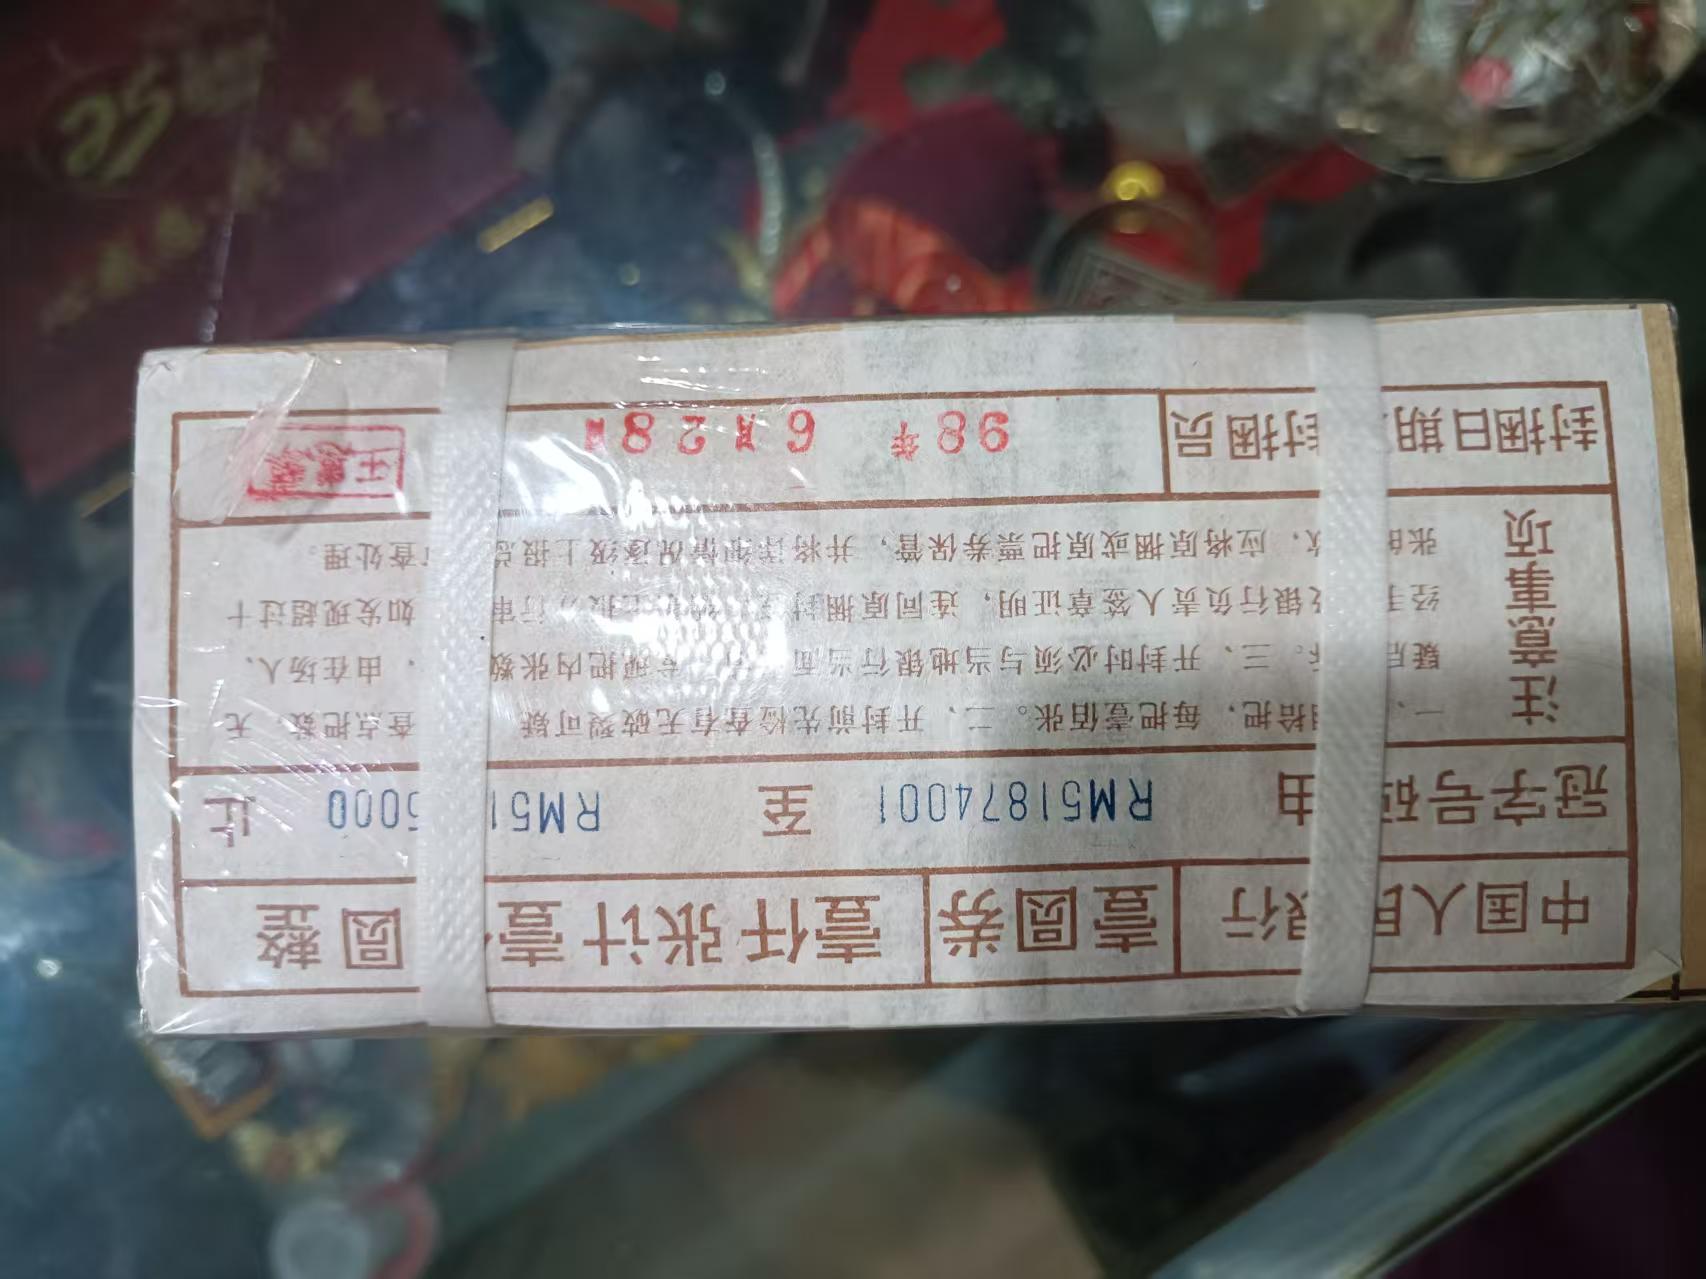 中国人民银行 壹圆券 壹仟张计壹 圆整
冠字号码由 RM51874001 至 RM51 5000 止
注意事项
一、 捆拾把，每把壹佰张。二、开封前先检查有无破裂可疑 查点把数，无
疑后 三、开封时必须与当地银行当面 把内张数 ，由在场人、
经手 银行负责人签章证明，连同原捆封 上报 行审 如发现超过十
张的 应将原捆或原把票券保管，并将详细情况逐级上报总 查处理。
封捆日期 封捆员 98年 6月28日